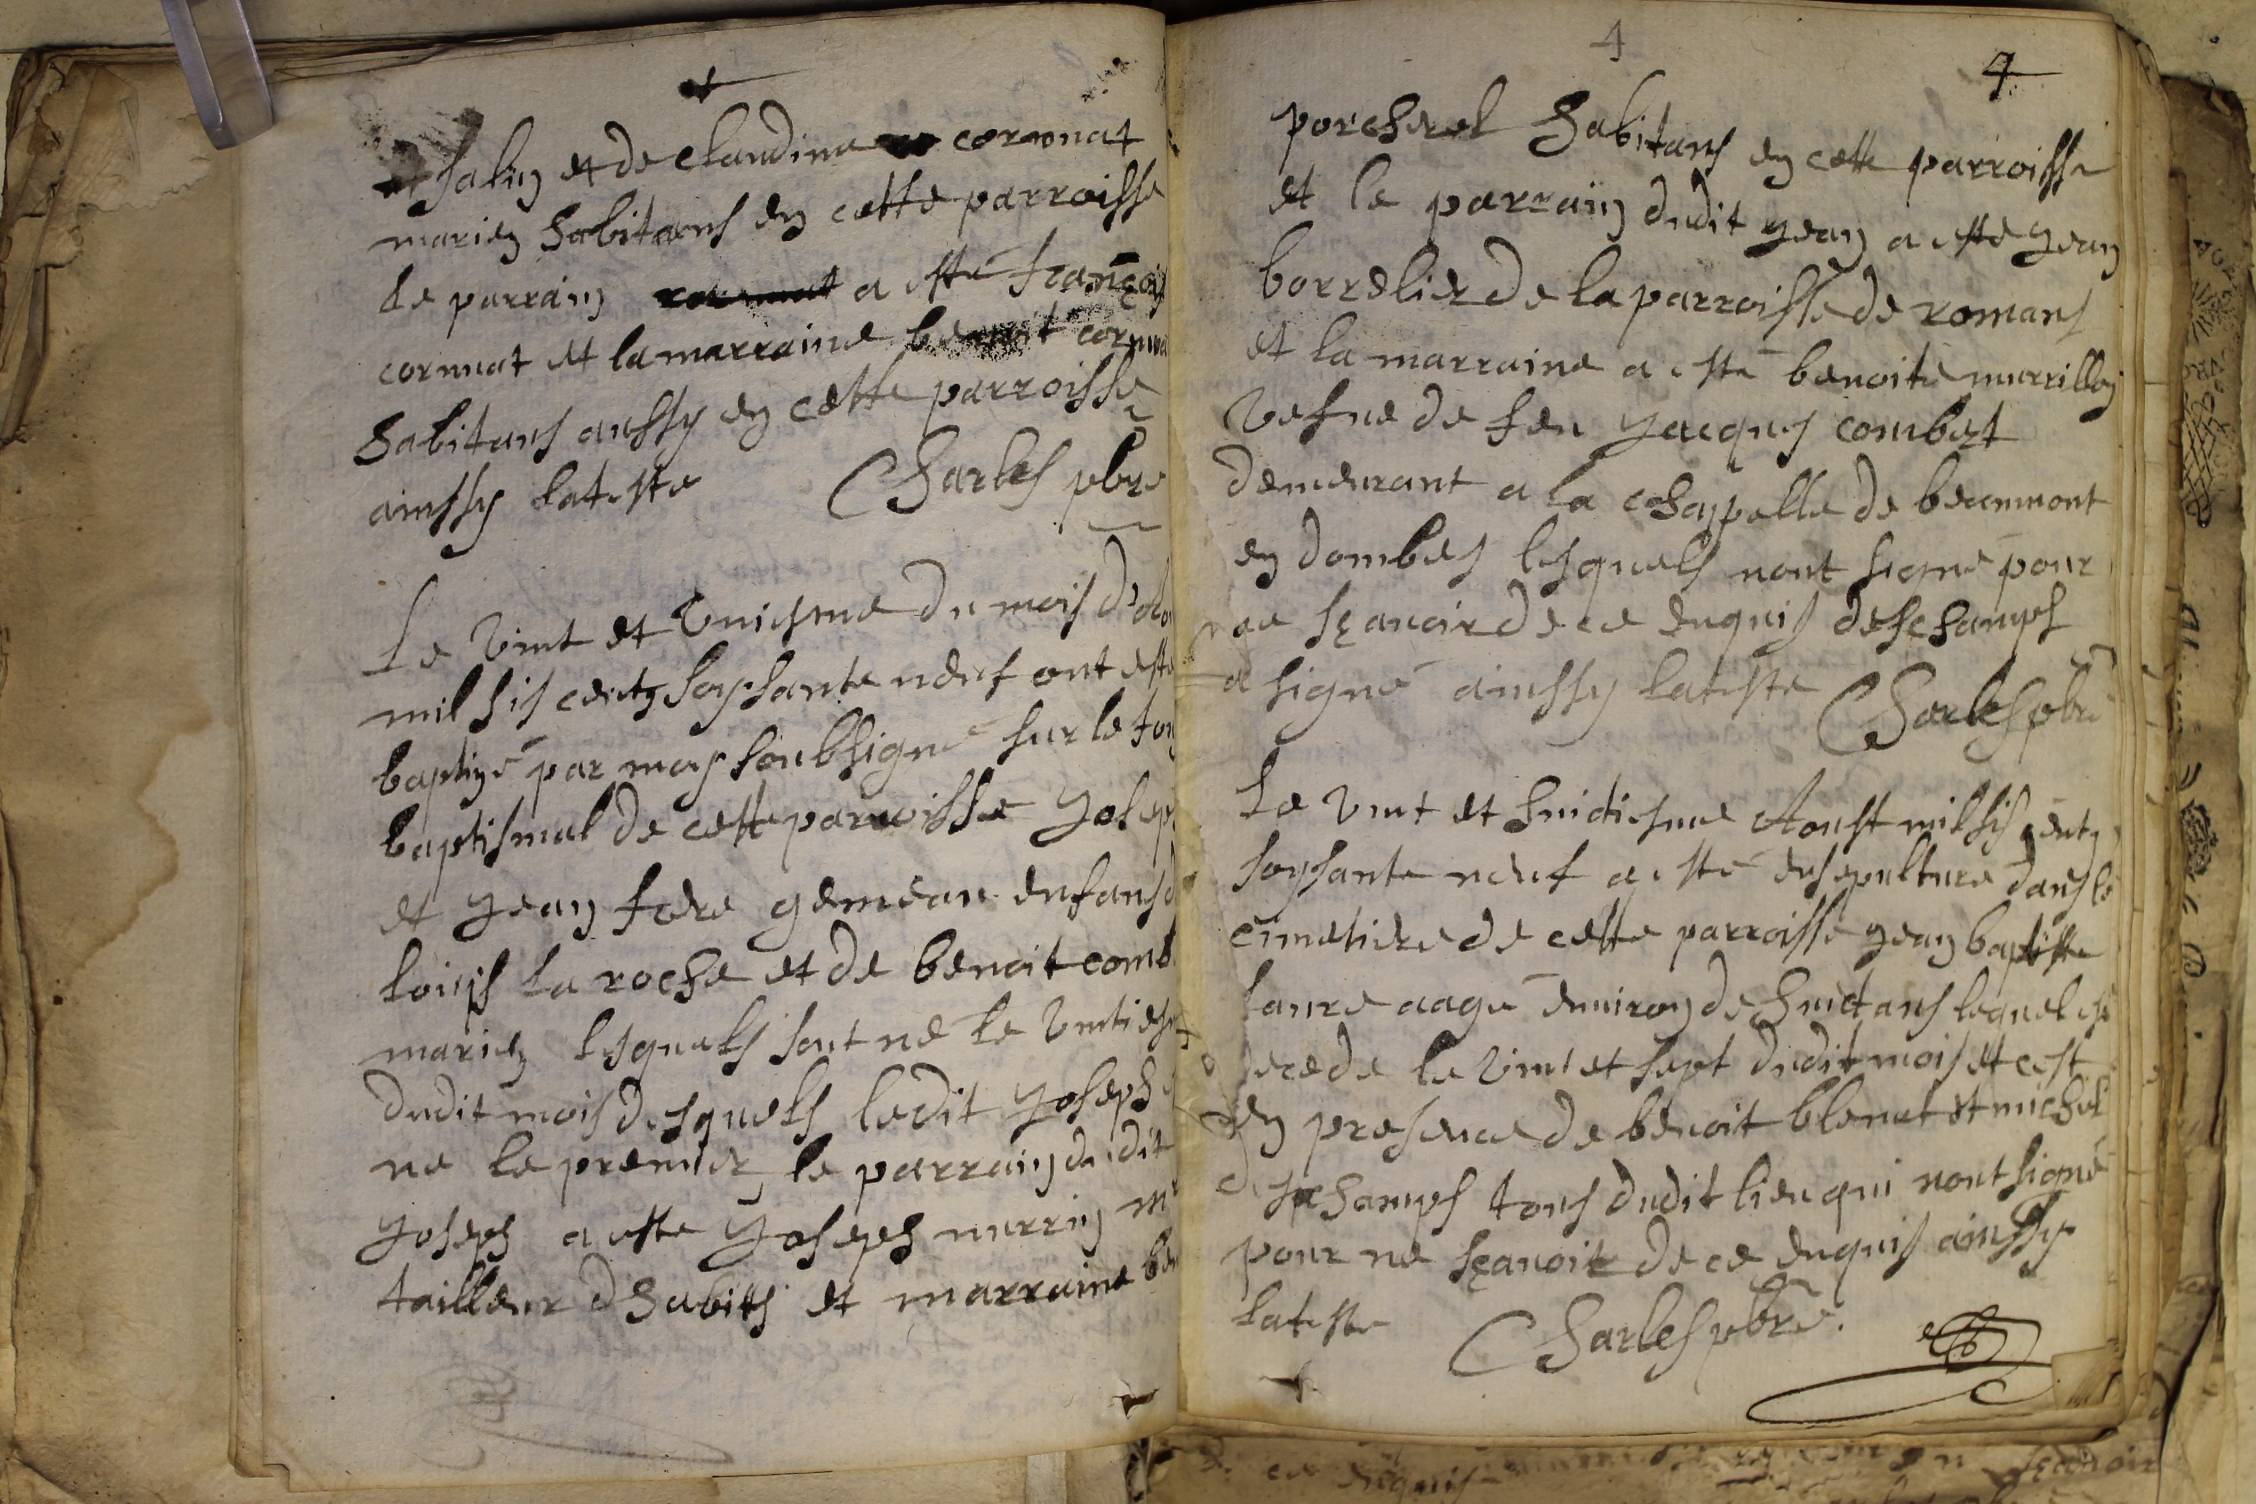 salin et de claudine cormat
mariez habitans en cette parroisse
le parrain a esté françois
cormat et la marraine benoit corma
habitans aussy en cette parroisse
ainssy lateste Charles pbre
Le vint et vniesme du mois d'
mil sis centz soyssante neuf ont esté
baptizé par moy soubsigné sur le fon
baptismal de cette parroisse Yosep
et yean frere gemeau enfans d
louys la roche et de benoit comb
mariez lesquels sont né le vintiesm
dudit mois desquels ledit Yoseph
né le premier le parrain dudit
Yoseph a esté Yoseph murrin m
tailleur dhabits et marraine ben
4
4
porcherel habitans en cette parroisse
et le parrain dudit yean a esté yean
borrelier de la parroisse de romans
et la marraine a esté benoite murrillon
vefue de feu yacques combet
demeurant a la chappelle de beaumont
en dombes lesquels nont signé pour
ne sçauoir de ce enquis deschamps
a signé ainssy lateste Charles pbre
Le vint et huictiesme Aoust mil sis centz
soyssante neuf a esté ensepulturé dans le
cimetiere de cette parroisse yean baptiste
laure aagé enuiron de huict ans lequel est
decede le vint et sept dudit mois et cest
en presence de benoit blenat et michel
deschamps tous dudit lieu qui nont signé
pour ne sçauoir de ce enquis ainssy
lateste Charles pbre.
ce enquis sçauoir